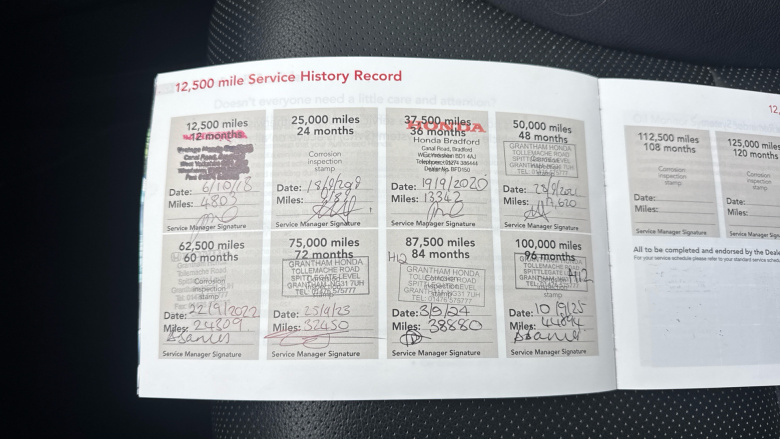 12,500 mile Service History Record
12,500 miles
12 months
Date: 6/10/18
Miles: 4803
Service Manager Signature
25,000 miles
24 months
Corrosion
inspection
stamp
Date:
Miles:
Service Manager Signature
37,500 miles
36 months
HONDA
Honda Bradford
Canal Road, Bradford
West Yorkshire BD1 4AJ
Telephone: 01274 386444
Dealer No. BFD150
Date: 19/9/2020
Miles: 13342
Service Manager Signature
50,000 miles
48 months
GRANTHAM HONDA
TOLLEMACHE ROAD
Date:
Miles:
Service Manager Signature
62,500 miles
60 months
Corrosion
inspection
stamp
Date: 22/9/2022
Miles: 24809
Service Manager Signature
75,000 miles
72 months
GRANTHAM HONDA
TOLLEMACHE ROAD
SPITTLEGATE LEVEL
GRANTHAM NG31 7UH
TEL: 01476 575777
Date: 25/9/23
Miles: 32450
Service Manager Signature
87,500 miles
84 months
H12
GRANTHAM HONDA
TOLLEMACHE ROAD
SPITTLEGATE LEVEL
GRANTHAM NG31 7UH
TEL: 01476 575777
Date: 3/9/24
Miles: 38880
Service Manager Signature
100,000 miles
96 months
H12
Date: 10/9/25
Miles:
Service Manager Signature
12,
112,500 miles
108 months
Corrosion
inspection
stamp
Date:
Miles:
Service Manager Signature
125,000 miles
120 months
Corrosion
inspection
stamp
Date:
Miles:
Service Manager Sign
All to be completed and endorsed by the Deale
For your service schedule please refer to your standard service schedu